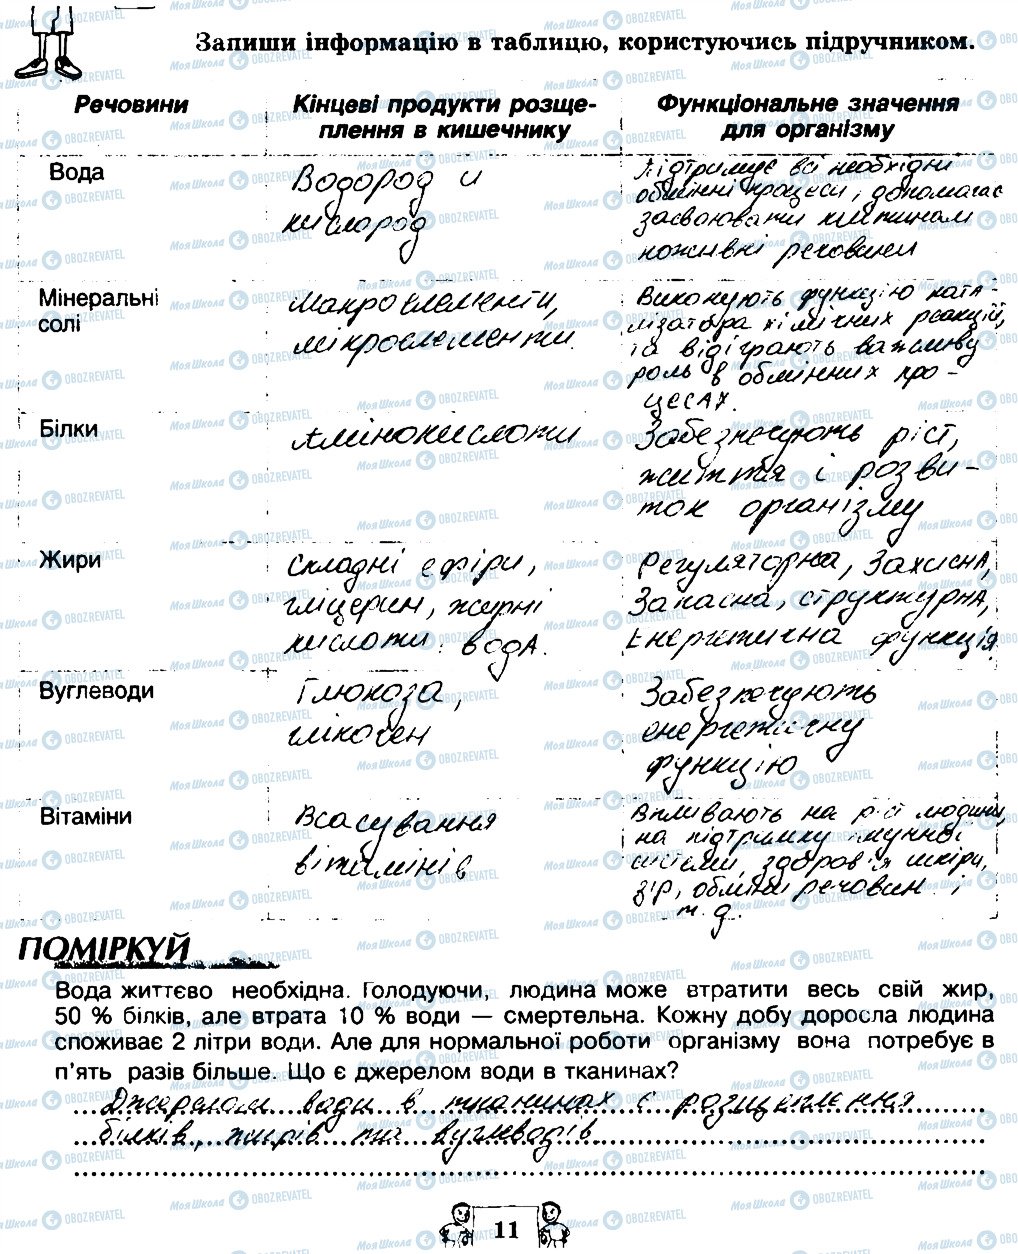 Запиши інформацію в таблицю, користуючись підручником.
Речовини
Кінцеві продукти розще-
плення в кишечнику
Функціональне значення
для організму
Вода
Водород и
кислород
Підтримує всі необхідни
обмінні процеси, допомагає
засвоювати клітинам
поживні речовини
Мінеральні
солі
Макроелементи,
мікроелементи.
Виконують функцію ката-
лізатора хімічних реакцій,
та відіграють важливу
роль в обмінних про-
цесах.
Білки
Амінокислоти
Забезпечують ріст,
життя і розви-
ток організму
Жири
Складні ефіри,
гліцерин, жирні
кислоти. вода.
Регуляторна, Захисна,
Запасна, структурна,
Енергетична функція.
Вуглеводи
Глюкоза,
глікоген
Забезпечують
енергетичну
функцію
Вітаміни
Всасування
вітамінів
Впливають на ріст людини,
на підтримку імунної
системи, здоров'я шкіри,
зір, обміни речовин і
т. д.
ПОМІРКУЙ
Вода життєво необхідна. Голодуючи, людина може втратити весь свій жир,
50 % білків, але втрата 10 % води — смертельна. Кожну добу доросла людина
споживає 2 літри води. Але для нормальної роботи організму вона потребує в
п'ять разів більше. Що є джерелом води в тканинах?
Джерелом води в тканинах є розщеплення
білків, жирів та вуглеводів
11